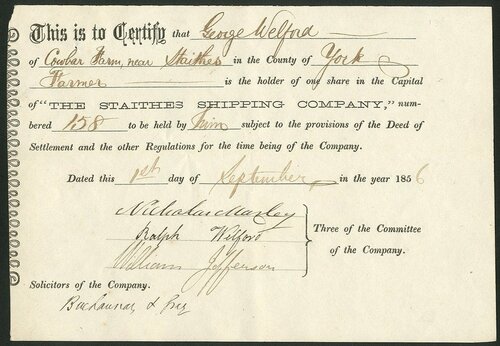 This is to Certify that George Welford
of Cowbar Farm, near Staithes in the County of York
Farmer is the holder of one share in the Capital
of "THE STAITHES SHIPPING COMPANY," num-
bered 158 to be held by him subject to the provisions of the Deed of
Settlement and the other Regulations for the time being of the Company.
Dated this 1st day of September in the year 1856
Nicholas Marley
Ralph Welford
William Jefferson
Three of the Committee
of the Company.
Solicitors of the Company.
Buchannan &